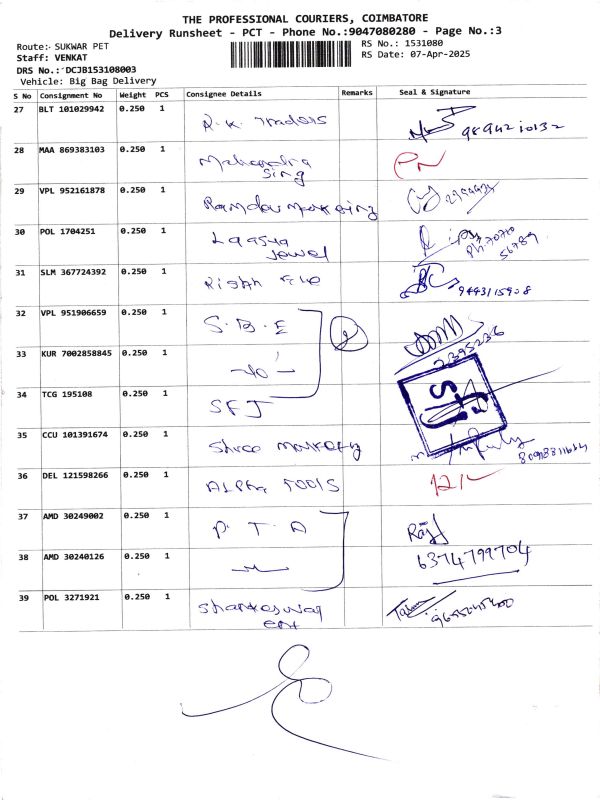 THE PROFESSIONAL COURIERS, COIMBATORE
Delivery Runsheet - PCT - Phone No.:9047080280 - Page No.:3
Route: SUKWAR PET
RS No.: 1531080
Staff: VENKAT
RS Date: 07-Apr-2025
DRS No.: DCJB153108003
Vehicle: Big Bag Delivery
S No Consignment No Weight PCS Consignee Details Remarks Seal & Signature
27 BLT 101029942 0.250 1 R.K. Traders
28 MAA 869383103 0.250 1 Mahendra
Sing
29 VPL 952161878 0.250 1 Ramdev marketing
30 POL 1704251 0.250 1 Laasya
Jewel
31 SLM 367724392 0.250 1 Right
32 VPL 951906659 0.250 1 S.B.E 2
33 KUR 7002858845 0.250 1 -do-
34 TCG 195108 0.250 1 SFJ
35 CCU 101391674 0.250 1 Shree marketing
36 DEL 121598266 0.250 1 Alpha Tools
37 AMD 30249002 0.250 1 P.T.A Raj
38 AMD 30240126 0.250 1 6374799704
39 POL 3271921 0.250 1 Shankeswar
Ent